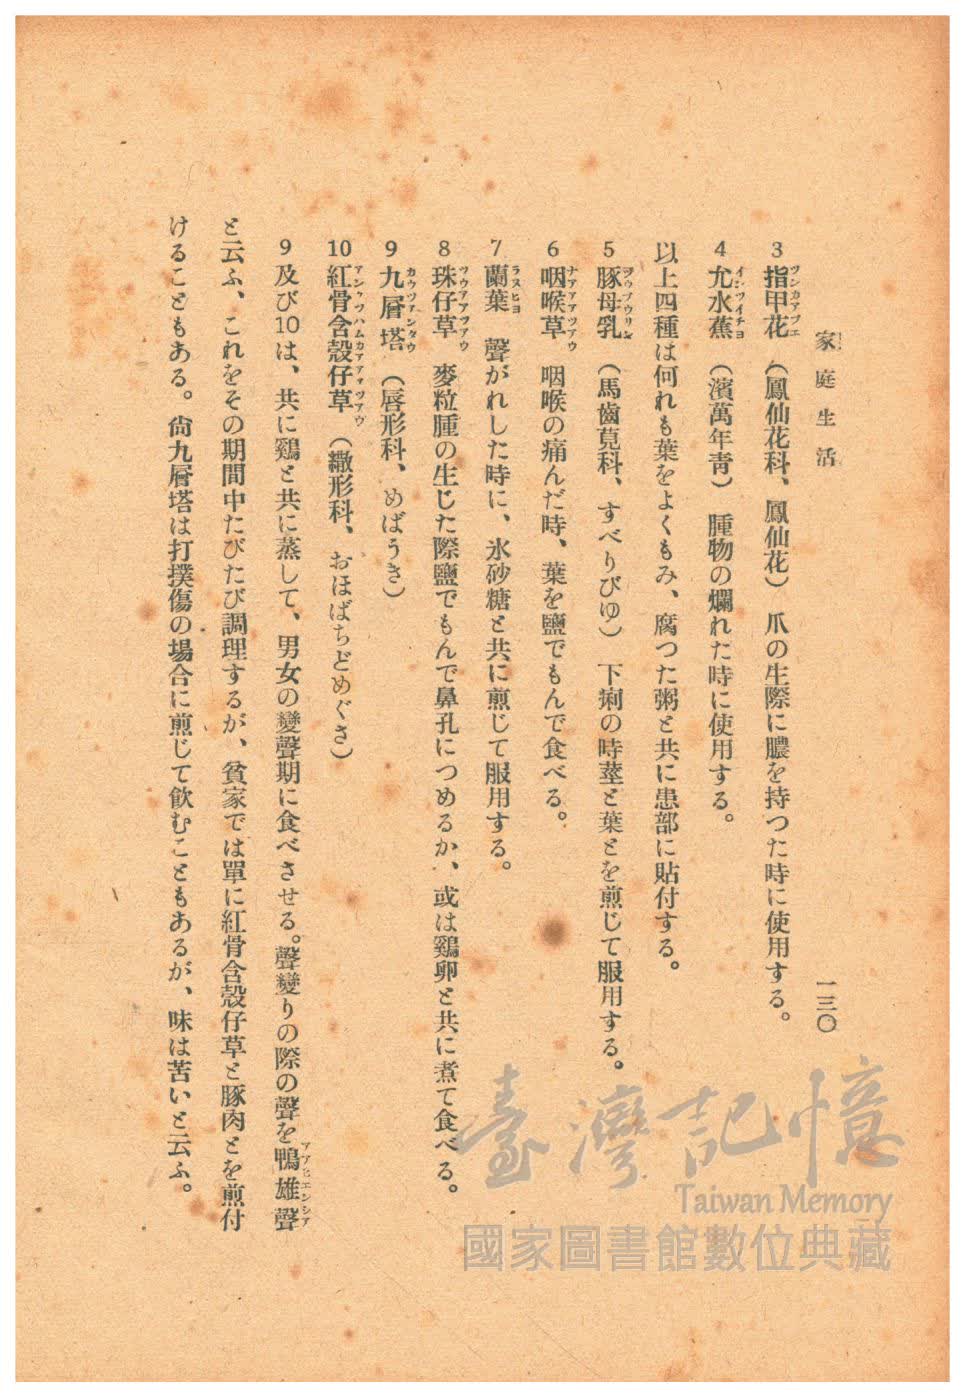 家庭生活
一三〇
3 指甲花 （鳳仙花科、鳳仙花） 爪の生際に膿を持つた時に使用する。
4 允水蕉 （濱萬年青） 腫物の爛れた時に使用する。
以上四種は何れも葉をよくもみ、腐つた粥と共に患部に貼付する。
5 豚母乳 （馬齒莧科、すべりびゆ） 下痢の時莖と葉とを煎じて服用する。
6 咽喉草 咽喉の痛んだ時、葉を鹽でもんで食べる。
7 蘭葉 聲がれした時に、氷砂糖と共に煎じて服用する。
8 珠仔草 麥粒腫の生じた際鹽でもんで鼻孔につめるか、或は鷄卵と共に煮て食べる。
9 九層塔 （唇形科、めばうき）
10 紅骨含殼仔草 （繖形科、おほばちどめぐさ）
9及び10は、共に鷄と共に蒸して、男女の變聲期に食べさせる。聲變りの際の聲を鴨雄聲
と云ふ、これをその期間中たびたび調理するが、貧家では單に紅骨含殼仔草と豚肉とを煎付
けることもある。尙九層塔は打撲傷の場合に煎じて飮むこともあるが、味は苦いと云ふ。
臺灣記憶
Taiwan Memory
國家圖書館數位典藏